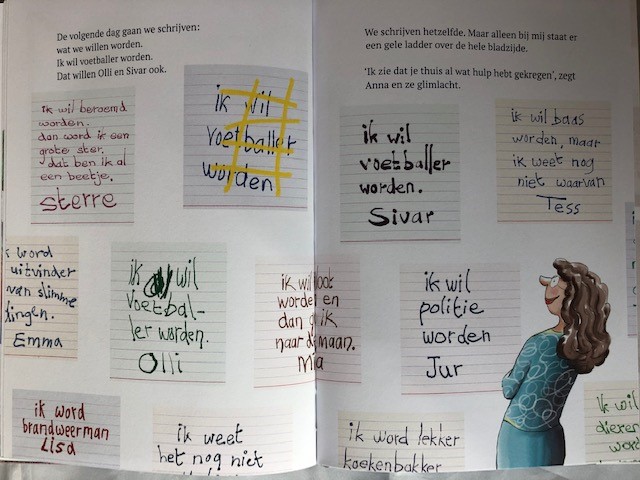 De volgende dag gaan we schrijven:
wat we willen worden.
Ik wil voetballer worden.
Dat willen Olli en Sivar ook.
ik wil beroemd
worden.
dan word ik een
grote ster.
dat ben ik al
een beetje.
sterre
ik wil
voetballer
worden
ik word
uitvinder
van slimme
dingen.
Emma
ik wil
voetbal-
ler worden.
Olli
ik word
brandweerman
Lisa
ik weet
het nog niet
We schrijven hetzelfde. Maar alleen bij mij staat er
een gele ladder over de hele bladzijde.
'Ik zie dat je thuis al wat hulp hebt gekregen', zegt
Anna en ze glimlacht.
ik wil
voetballer
worden.
Sivar
ik wil baas
worden, maar
ik weet nog
niet waarvan
Tess
ik wil
en
dan ik
naar maan.
Mia
ik wil
politie
worden
Jur
ik word lekker
koekenbakker
ik wil
dieren
word